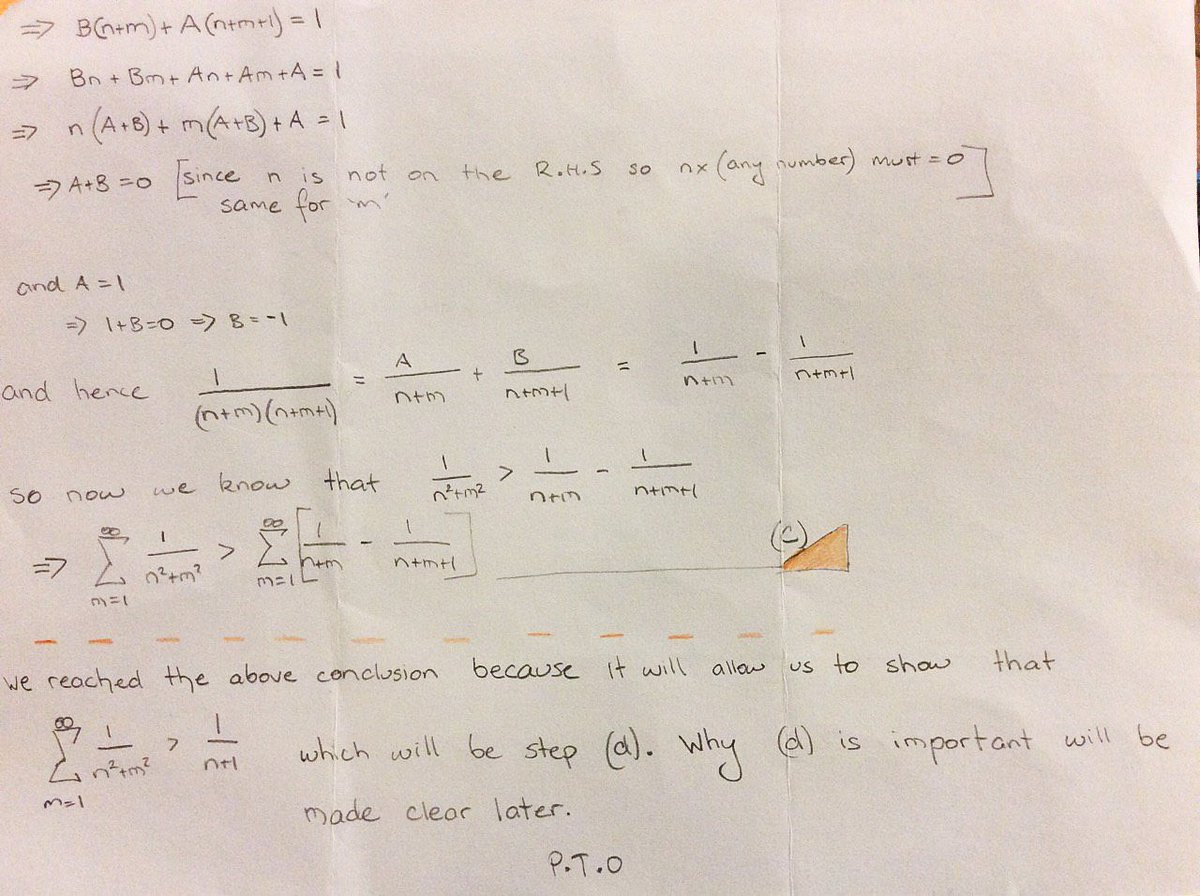 ⇒ B(n+m) + A(n+m+1) = 1
⇒ Bn + Bm + An + Am + A = 1
⇒ n(A+B) + m(A+B) + A = 1
⇒ A+B = 0 [since n is not on the R.H.S so n×(any number) must = 0
same for 'm']
and A = 1
⇒ 1+B=0 ⇒ B = -1
and hence 1/((n+m)(n+m+1)) = A/(n+m) + B/(n+m+1) = 1/(n+m) - 1/(n+m+1)
so now we know that 1/(n²+m²) > 1/(n+m) - 1/(n+m+1)
⇒ ∑_{m=1}^{∞} 1/(n²+m²) > ∑_{m=1}^{∞} [1/(n+m) - 1/(n+m+1)] (c)
we reached the above conclusion because it will allow us to show that
∑_{m=1}^{∞} 1/(n²+m²) > 1/(n+1) which will be step (d). Why (d) is important will be
made clear later.
P.T.O